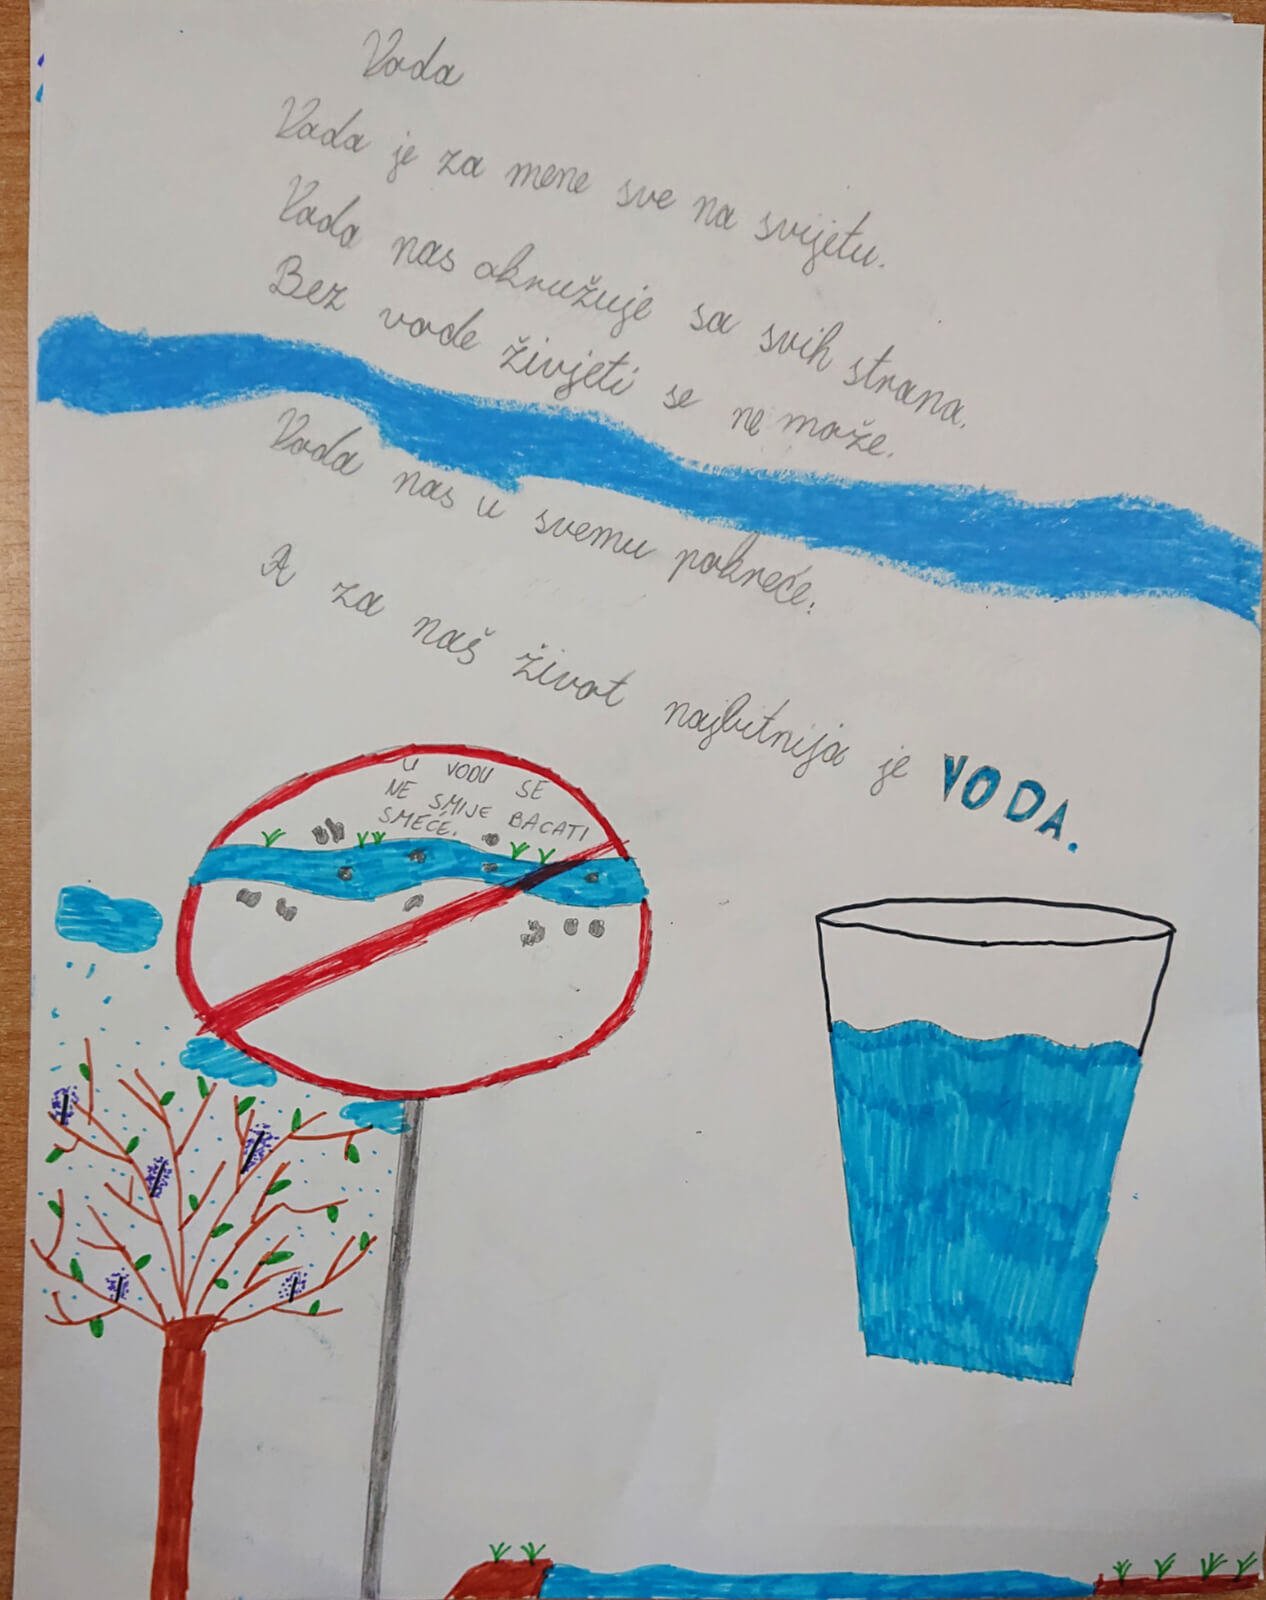 Voda
Voda je za mene sve na svijetu.
Voda nas okružuje sa svih strana.
Bez vode živjeti se ne može.
Voda nas u svemu pokreće.
A za naš život najbitnija je VODA.
U VODU SE
NE SMIJE BACATI
SMEĆE.